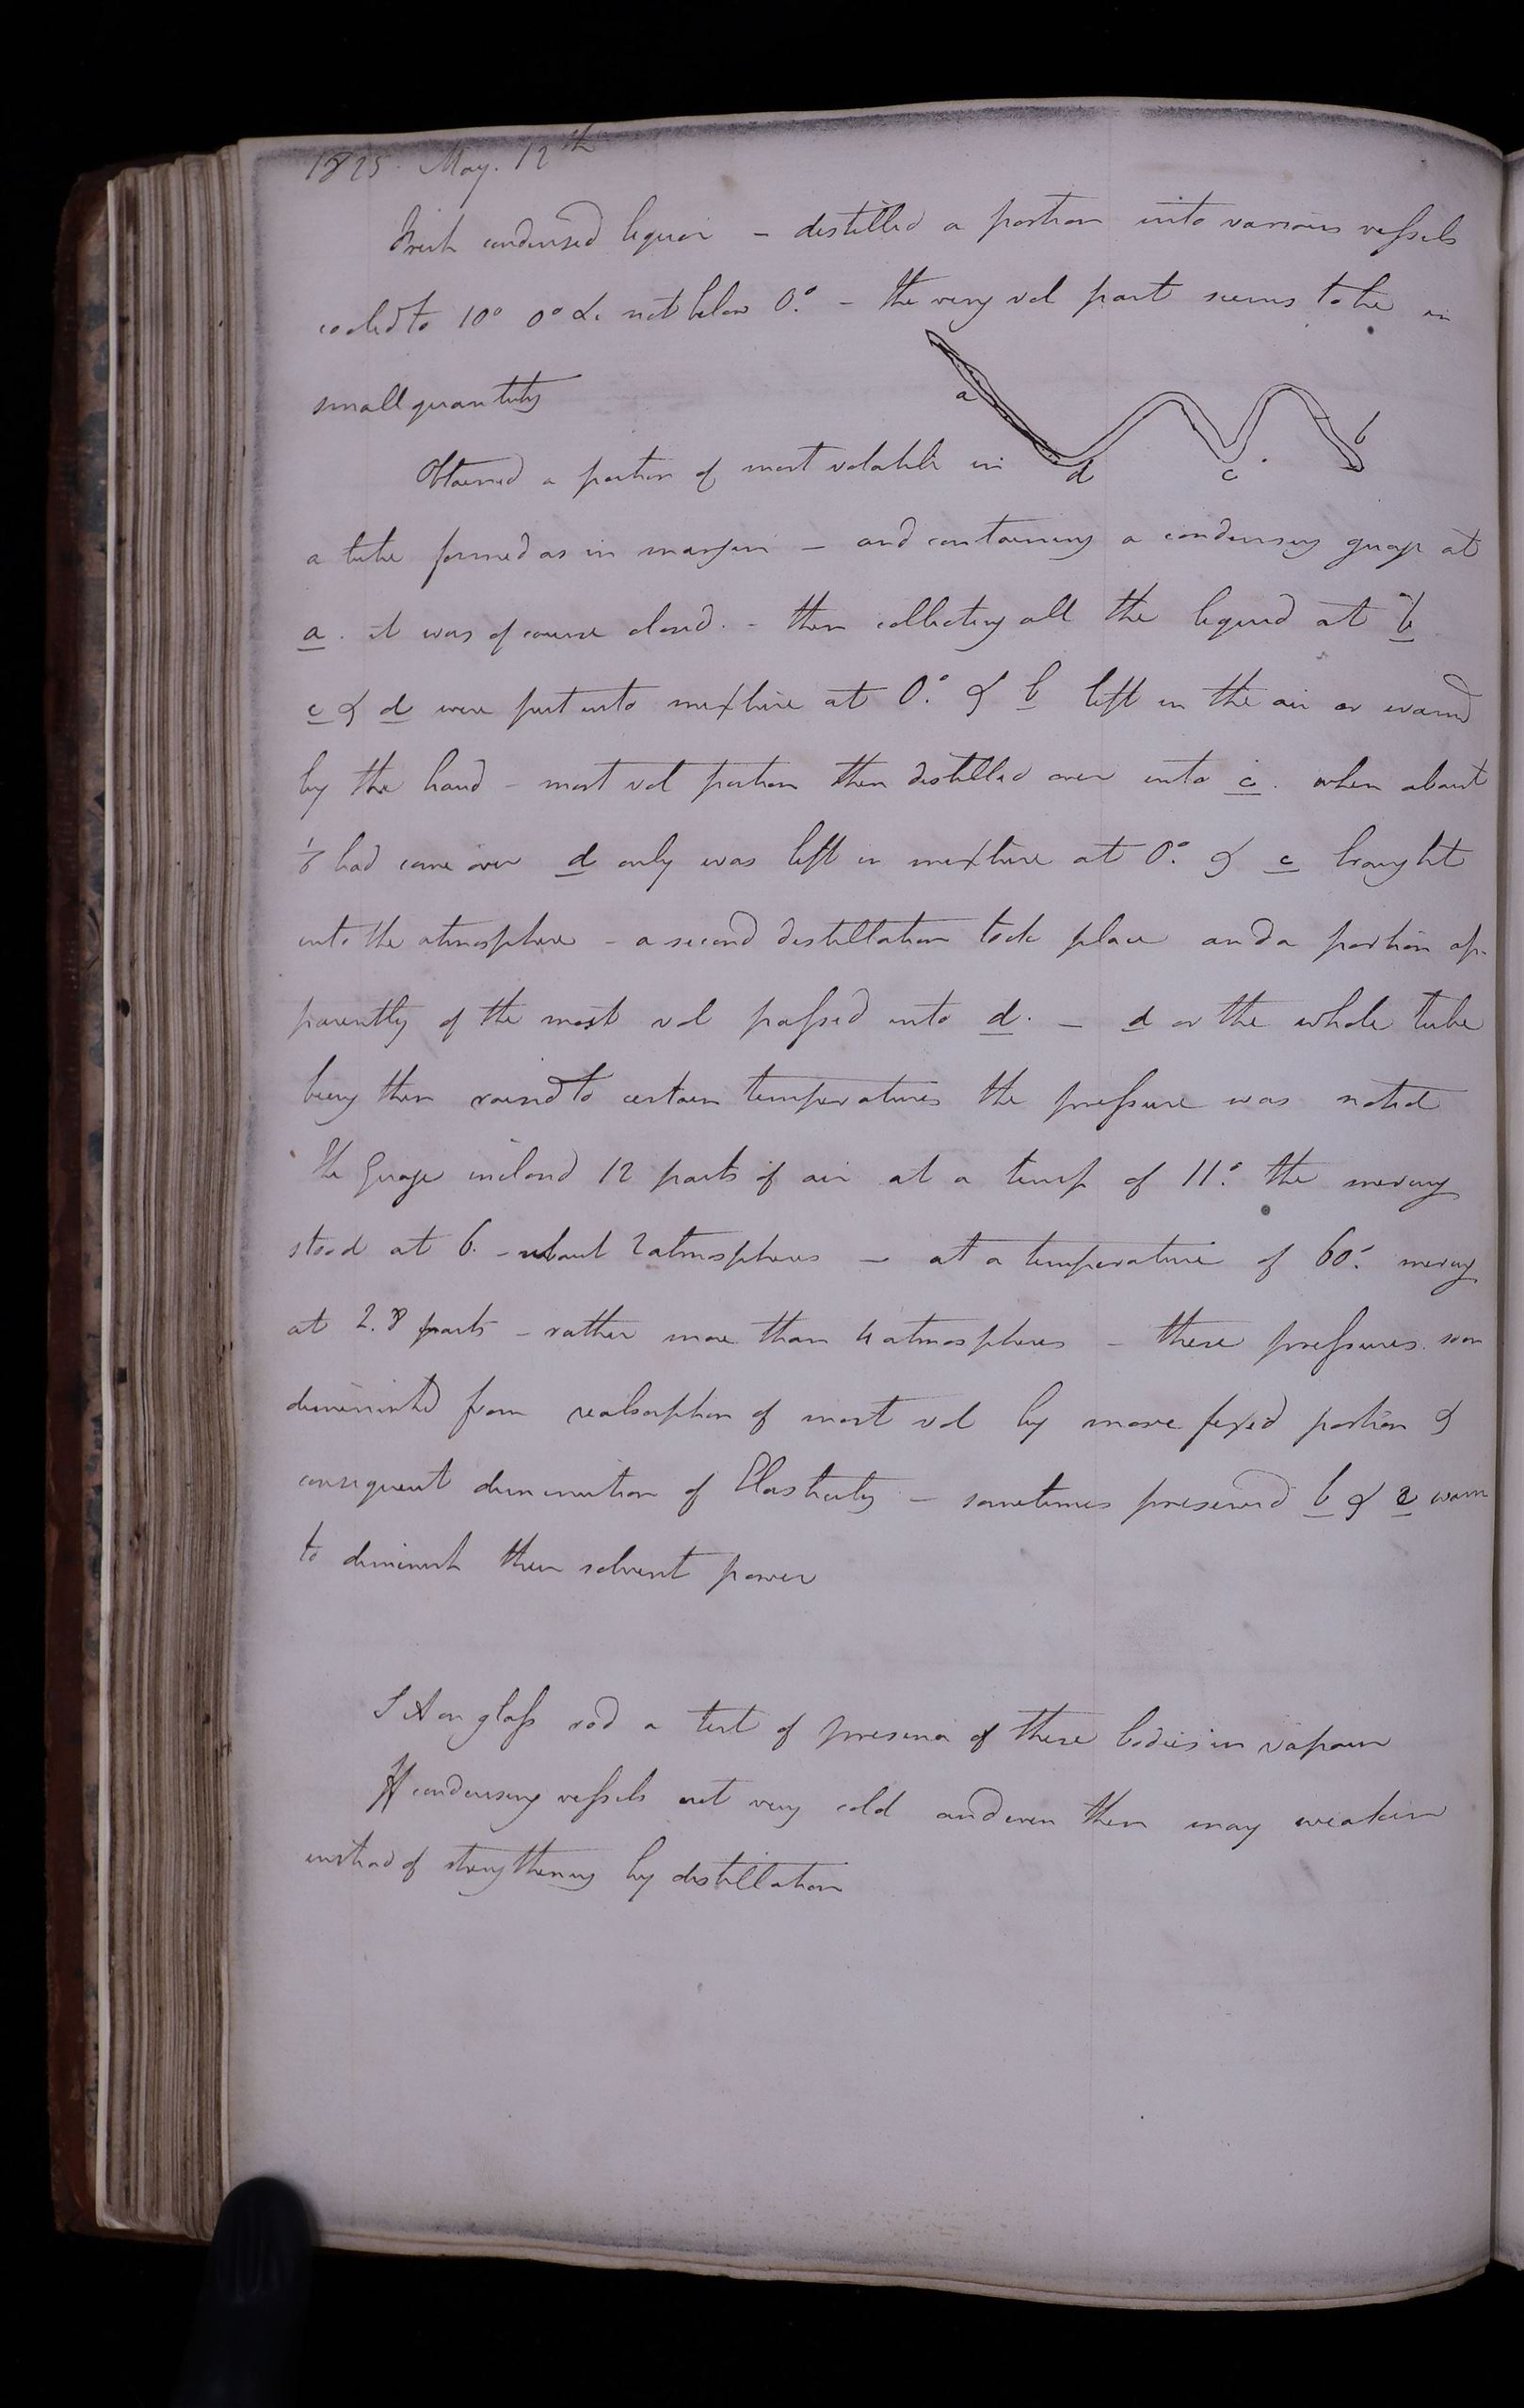 1825. May. 12th
Fresh condensed liquor - distilled a portion into various vessels
cooled to 10° 0° &c not below 0°. - the very vol part seems to be in
small quantity
a
b
d
c
Obtained a portion of most volatile in
a tube formed as in margin - and containing a condensing guage at
a. it was of course closed. - then collecting all the liquid at b
c & d were put into mixture at 0°. & b left in the air or warmd
by the hand - most vol portion then distilled over into c. when about
had come over d only was left in mixture at 0°. & c brought
into the atmosphere - a second distillation took place and a portion ap-
parently of the most vol passed into d. - d or the whole tube
being then raised to certain temperatures the pressure was noted
The Guage inclosed 12 parts of air at a temp of 11°. the mercury
stood at 6. - about 2 atmospheres - at a temperature of 60°. mercury
at 2.8 parts - rather more than 4 atmospheres - these pressures soon
diminished from reabsorption of most vol by more fixed portion &
consequent diminution of Elasticity - sometimes preserved b & c warm
to diminish their solvent power
S A on glass rod a test of presence of these bodies in vapour
If condensing vessels not very cold and even then may weaken
instead of strengthening by distillation